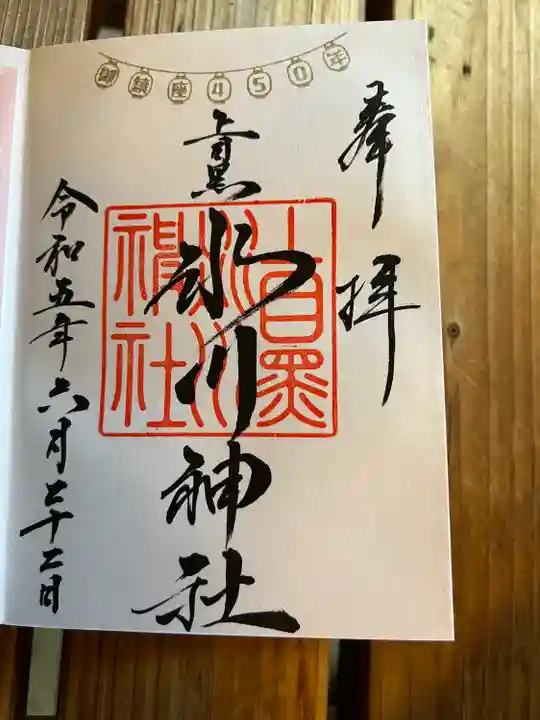 御鎮座450年
奉拝
上目黒氷川神社
上目黒
氷川
神社
令和五年六月二十二日